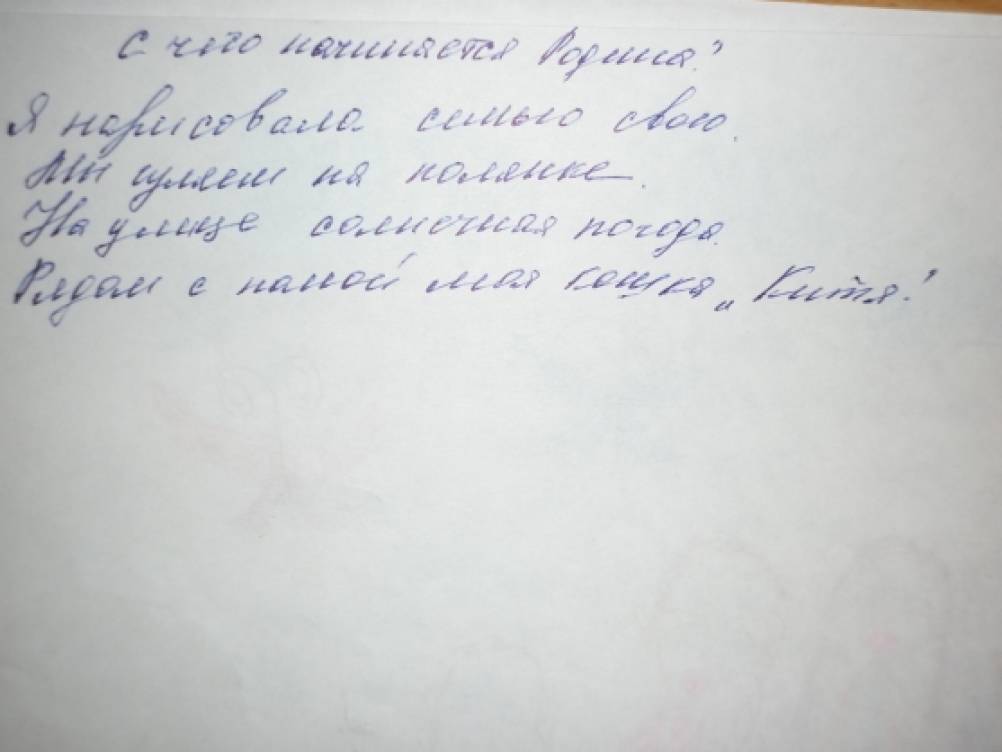 С чего начинается Родина?
Я нарисовала семью свою.
Мы гуляем на полянке.
На улице солнечная погода.
Рядом с мамой моя кошка „Китя."